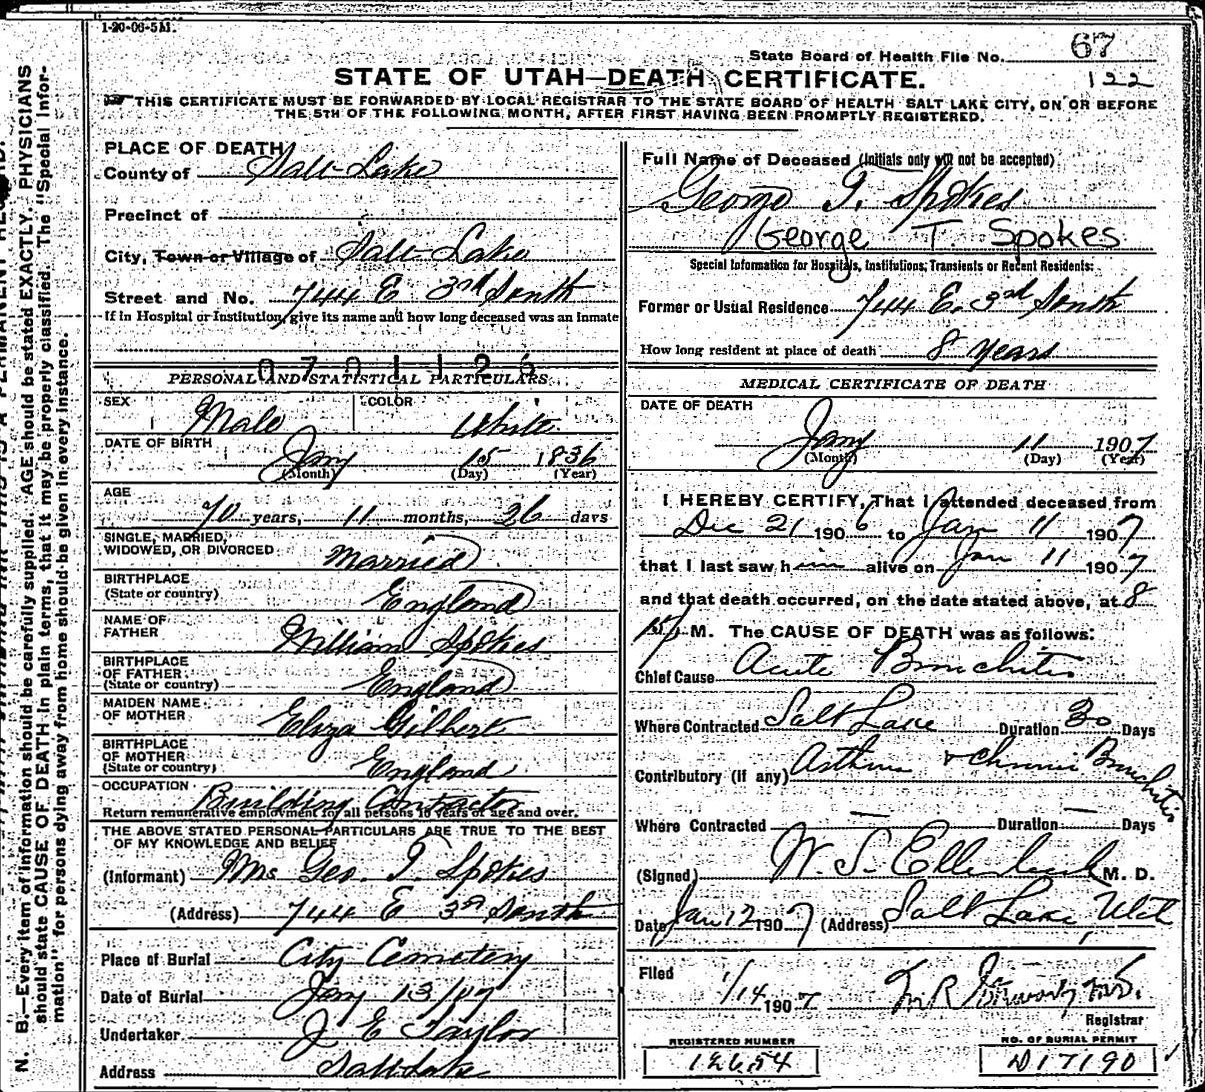 1-20-06-5M.
State Board of Health File No. 67
122
STATE OF UTAH—DEATH CERTIFICATE.
THIS CERTIFICATE MUST BE FORWARDED BY LOCAL REGISTRAR TO THE STATE BOARD OF HEALTH SALT LAKE CITY, ON OR BEFORE
THE 5TH OF THE FOLLOWING MONTH, AFTER FIRST HAVING BEEN PROMPTLY REGISTERED.
PLACE OF DEATH
County of Salt Lake
Precinct of
City, Town or Village of Salt Lake
Street and No. 744 E 3rd South
If in Hospital or Institution, give its name and how long deceased was an Inmate
0701126
PERSONAL AND STATISTICAL PARTICULARS
SEX Male COLOR White
DATE OF BIRTH
Jany 15 1836
(Month) (Day) (Year)
AGE
70 years, 11 months, 26 days
SINGLE, MARRIED,
WIDOWED, OR DIVORCED Married
BIRTHPLACE
(State or country) England
NAME OF
FATHER William Spokes
BIRTHPLACE
OF FATHER
(State or country) England
MAIDEN NAME
OF MOTHER Eliza Gilbert
BIRTHPLACE
OF MOTHER
(State or country) England
OCCUPATION Building Contractor
Return remunerative employment for all persons 10 years of age and over.
THE ABOVE STATED PERSONAL PARTICULARS ARE TRUE TO THE BEST
OF MY KNOWLEDGE AND BELIEF
(Informant) Mrs Geo. T. Spokes
(Address) 744 E 3rd South
Place of Burial City Cemetery
Date of Burial Jany 13/07
Undertaker J E Taylor
Address Salt Lake
Full Name of Deceased (Initials only will not be accepted)
George T. Spokes
George T. Spokes
Special Information for Hospitals, Institutions, Transients or Recent Residents:
Former or Usual Residence 744 E. 3rd South
How long resident at place of death 8 Years
MEDICAL CERTIFICATE OF DEATH
DATE OF DEATH
Jany 11 1907
(Month) (Day) (Year)
I HEREBY CERTIFY, That I attended deceased from
Dec 21 1906 to Jan 11 1907
that I last saw him alive on Jan 11 1907
and that death occurred, on the date stated above, at 8
M. The CAUSE OF DEATH was as follows:
Chief Cause Acute Bronchitis
Where Contracted Salt Lake Duration 30 Days
Contributory (if any) Asthma & Chronic Bronchitis
Where Contracted — Duration — Days
(Signed) W. S. Ellerbeck M. D.
Date Jan 12 1907 (Address) Salt Lake, Utah
Filed 1/14 1907 M. R.
Registrar
REGISTERED NUMBER
NO. OF BURIAL PERMIT
12654
D17190
N. B.—Every item of information should be carefully supplied. AGE should be stated EXACTLY. PHYSICIANS
should state CAUSE OF DEATH in plain terms, that it may be properly classified. The "Special Infor-
mation" for persons dying away from home should be given in every instance.